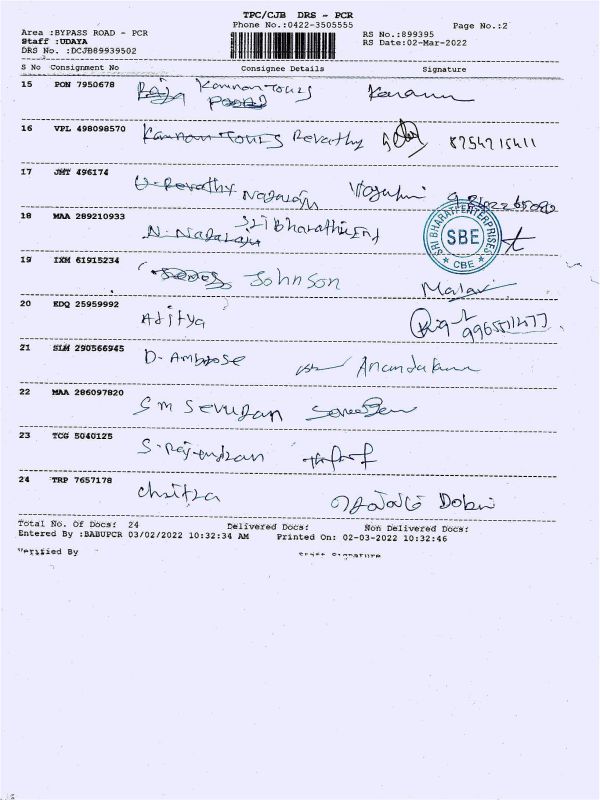 TPC/CJB DRS - PCR
Phone No.:0422-3505555 Page No.:2
Area :BYPASS ROAD - PCR
Staff :UDAYA
DRS No. :DCJB89939502
RS No.:899395
RS Date:02-Mar-2022
S No Consignment No Consignee Details Signature
15 PON 7950678 Kannan Tours
16 VPL 498098570 Kannan Tours Revathy 8754715411
17 JMT 496174 U-Revathy Nagaraju
18 MAA 289210933 N-Nagaraju
SRI BHARATHI ENTERPRISES
SBE
CBE
19 IXM 61915234 Johnson
20 EDQ 25959992 Aditya
Malar
21 SLM 290566945 D-Ambrose Anandakumar
22 MAA 286097820 S M Sevugan
23 TCG 5040125 S-Rajendran
24 TRP 7657178 Chaitra
Total No. Of Docs: 24 Delivered Docs: Non Delivered Docs:
Entered By :BABUPCR 03/02/2022 10:32:34 AM Printed On: 02-03-2022 10:32:46
Verified By Staff Signature